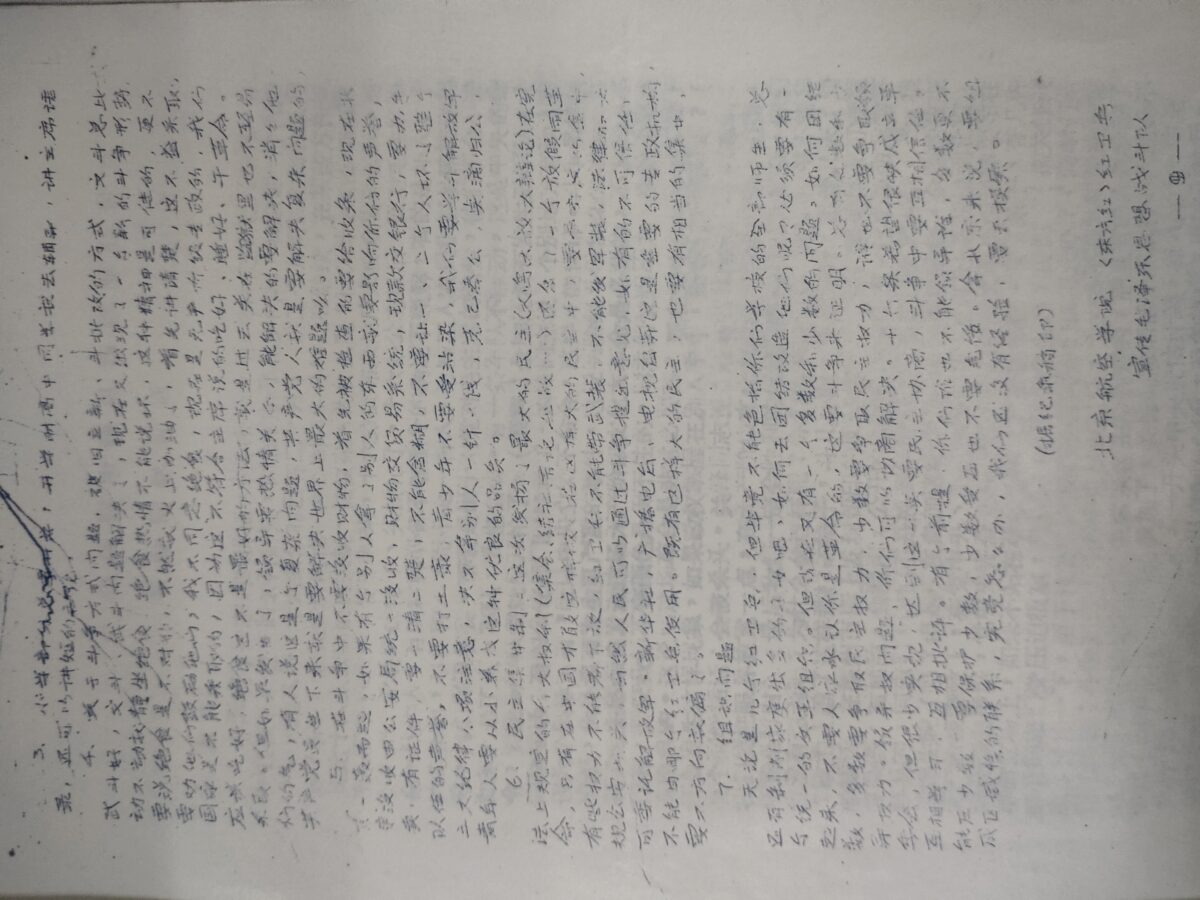 3. 小学部分也要开学，开学前高中同学我去辅导，讲主席语
录，还可以讲短的
4. 关于斗争方式问题，破旧立新、斗批改的方式，文斗总比
武斗好，文斗、武斗问题解决了，现在又出现了一个新的斗争形势，
动不动就静坐绝食，绝食热情不能说坏，这种精神是可佳的，更不
要说绝食是不对的，不然就火上加油了，首先讲清楚，这不益采取，
要劝他们
我不同意绝食，现在是无产阶级专政的，我们
国家是不能采取的，因为这不符合主席说的吃好、睡好、干革命。
应该吃好，绝食这不是最好的方法，就是过去关在监狱里也不轻易
采取。但如果发生了，领导要热情关心，能解决的要解决，消消他
们的气，有人说这是个复杂问题，共产党人就是要解决复杂问题的，
共产党员生下来就是要解决世界上最大的难题的。
5. 在斗争中不要没收财物，首先被检查的要给收条，现在我
如果有个别人拿了别人的东西就要影响你们的声誉，
没收由公安局统一没收，财物交贸易系统，现款交银行，要办手
续，有证件，要一清二楚，不能含糊，不要让一、二个人坏了整个
队伍的声誉，不要打土豪，青少年不要受沾染，我们要学习解放军
三大纪律八项注意，决不拿别人一针一线，克己奉公，涓滴归公，
青年人要从小养成这种优良的品质。
6. 民主集中制：这次发扬了最大的民主(大鸣大放大辩论)在宪
法上规定的各大权利(集会、结社、言论、
一个放假闹革
命，只有在中国才能这样做。在这样大的民主中，
有些权力不能都下放，红卫兵不能带武装，不能发军装，法律
规公安机关，当然人民可以通过斗争提出意见，如有的不可信任，
可委托解放军。新华社，广播电台，电视台等这是重要的专政机构，
不能由哪个红卫兵使用。既有这样大的民主，也要有相当的集中，
要不方向就偏了。
7. 组织问题
无论是几个红卫兵，但毕竟不能包括你们学校的全部师生，总
还有剥削家庭出身的子女吧，如何去团结改造他们呢？必须要有一
个统一的文革组织。但现在又有一个多数和少数的问题。如何团结
起来，不要人家承认你是革命的，这要斗争来证明。总有多数和少
数，多数要争取民主权力，少数要争取民主权力，谁也不要争取领
导权力。领导权问题，你们可以协商解决。十六条希望很快成立革
委会，但很少实现，达到这一点要民主协商，斗争中要互相信任。
互相学习，互相批评。有个前提，你们谁也不能领导谁，多数更不
能压少数，要保护少数，少数受压也不要
拿北京来说，要组
成区域性的联系，究竟怎么办，我们还没有经验，要去摸索。
(据纪录稿印)
北京航空学院〈东方红〉红卫兵
宣传毛泽东思想战斗队